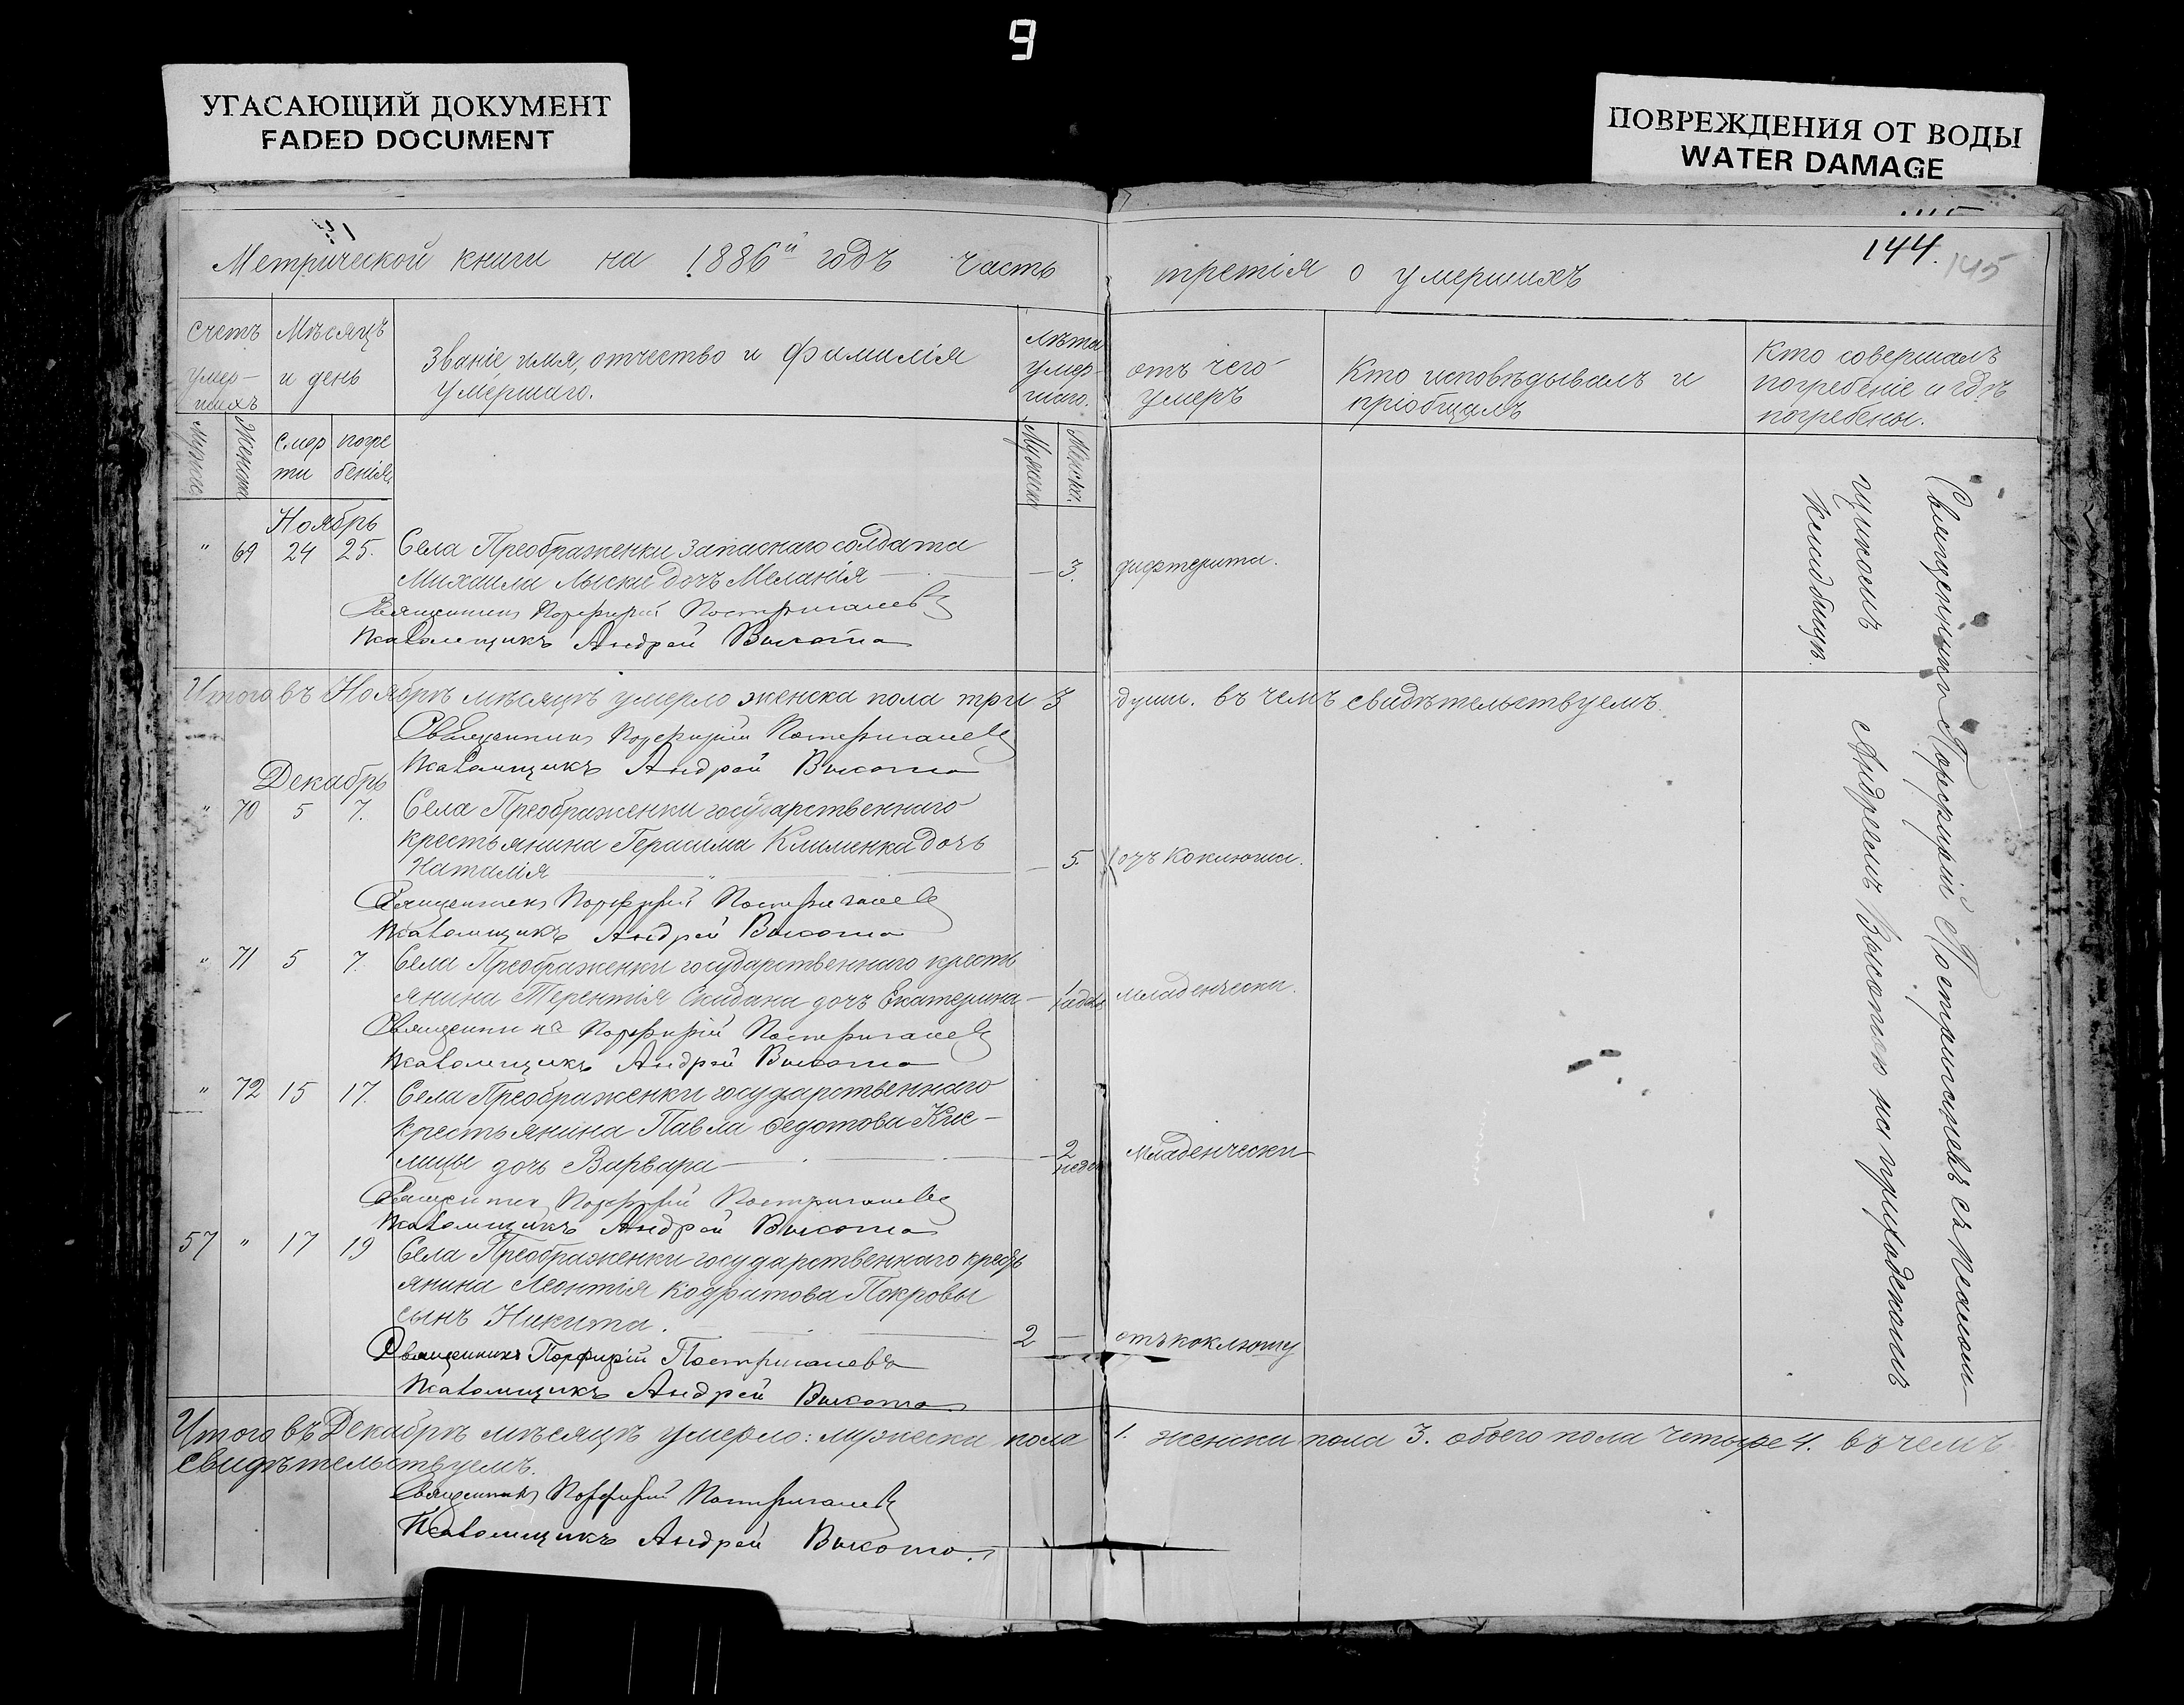 9
УГАСАЮЩИЙ ДОКУМЕНТ
FADED DOCUMENT
ПОВРЕЖДЕНИЯ ОТ ВОДЫ
WATER DAMAGE
144.
145
Метрической книги на 1886й годъ часть третія о умершихъ
Счетъ умер-шихъ
Мѣсяцъ и день
Званіе, имя, отчество и фамилія
умершаго.
Лѣта умер-шаго.
отъ чего
умеръ
Кто исповѣдывалъ и
пріобщалъ
Кто совершалъ
погребеніе и гдѣ
погребены.
Смер
ти
погре
бенія
Ноябрь
" 69 24 25. Села Преображенки запаснаго солдата
Михаила Лыски дочъ Меланія — 3. дифтерита.
Священникъ Порфирій Постригачевъ
Псаломщикъ Андрей Высота
Итого въ Ноябрѣ мѣсяцѣ умерло женска пола три 3 души. въ чемъ свидѣтельствуемъ.
Священникъ Порфирій Постригачевъ
Псаломщикъ Андрей Высота
Декабрь
" 70 5 7. Села Преображенки государственнаго
крестьянина Герасима Клименка дочъ
Наталія — 5. отъ коклюша.
Священникъ Порфирій Постригачевъ
Псаломщикъ Андрей Высота
" 71 5 7. Села Преображенки государственнаго кресть
янина Терентія Скидана дочъ Екатерина — 1 младенчески.
Священникъ Порфирій Постригачевъ
Псаломщикъ Андрей Высота
" 72 15 17. Села Преображенки государственнаго
крестьянина Павла Федотова
дочь Варвара — 2 недели Младенчески
Священникъ Порфирій Постригачевъ
Псаломщикъ Андрей Высота
57 " 17 19 Села Преображенки государственнаго кресть
янина Леонтія Кодратова Покровы
сынъ Никита. 2 — отъ коклюшу
Священникъ Порфирій Постригачевъ
Псаломщикъ Андрей Высота
Итого въ Декабрѣ мѣсяцѣ умерло: мужеска пола 1. женска пола 3. обоего пола четыре 4. въ чемъ
свидѣтельствуемъ.
Священникъ Порфирій Постригачевъ
Псаломщикъ Андрей Высота.
Священникомъ Порфирій Постригачевъ съ псаломщикомъ
Андреемъ Высотою на приходскомъ
кладбищѣ.